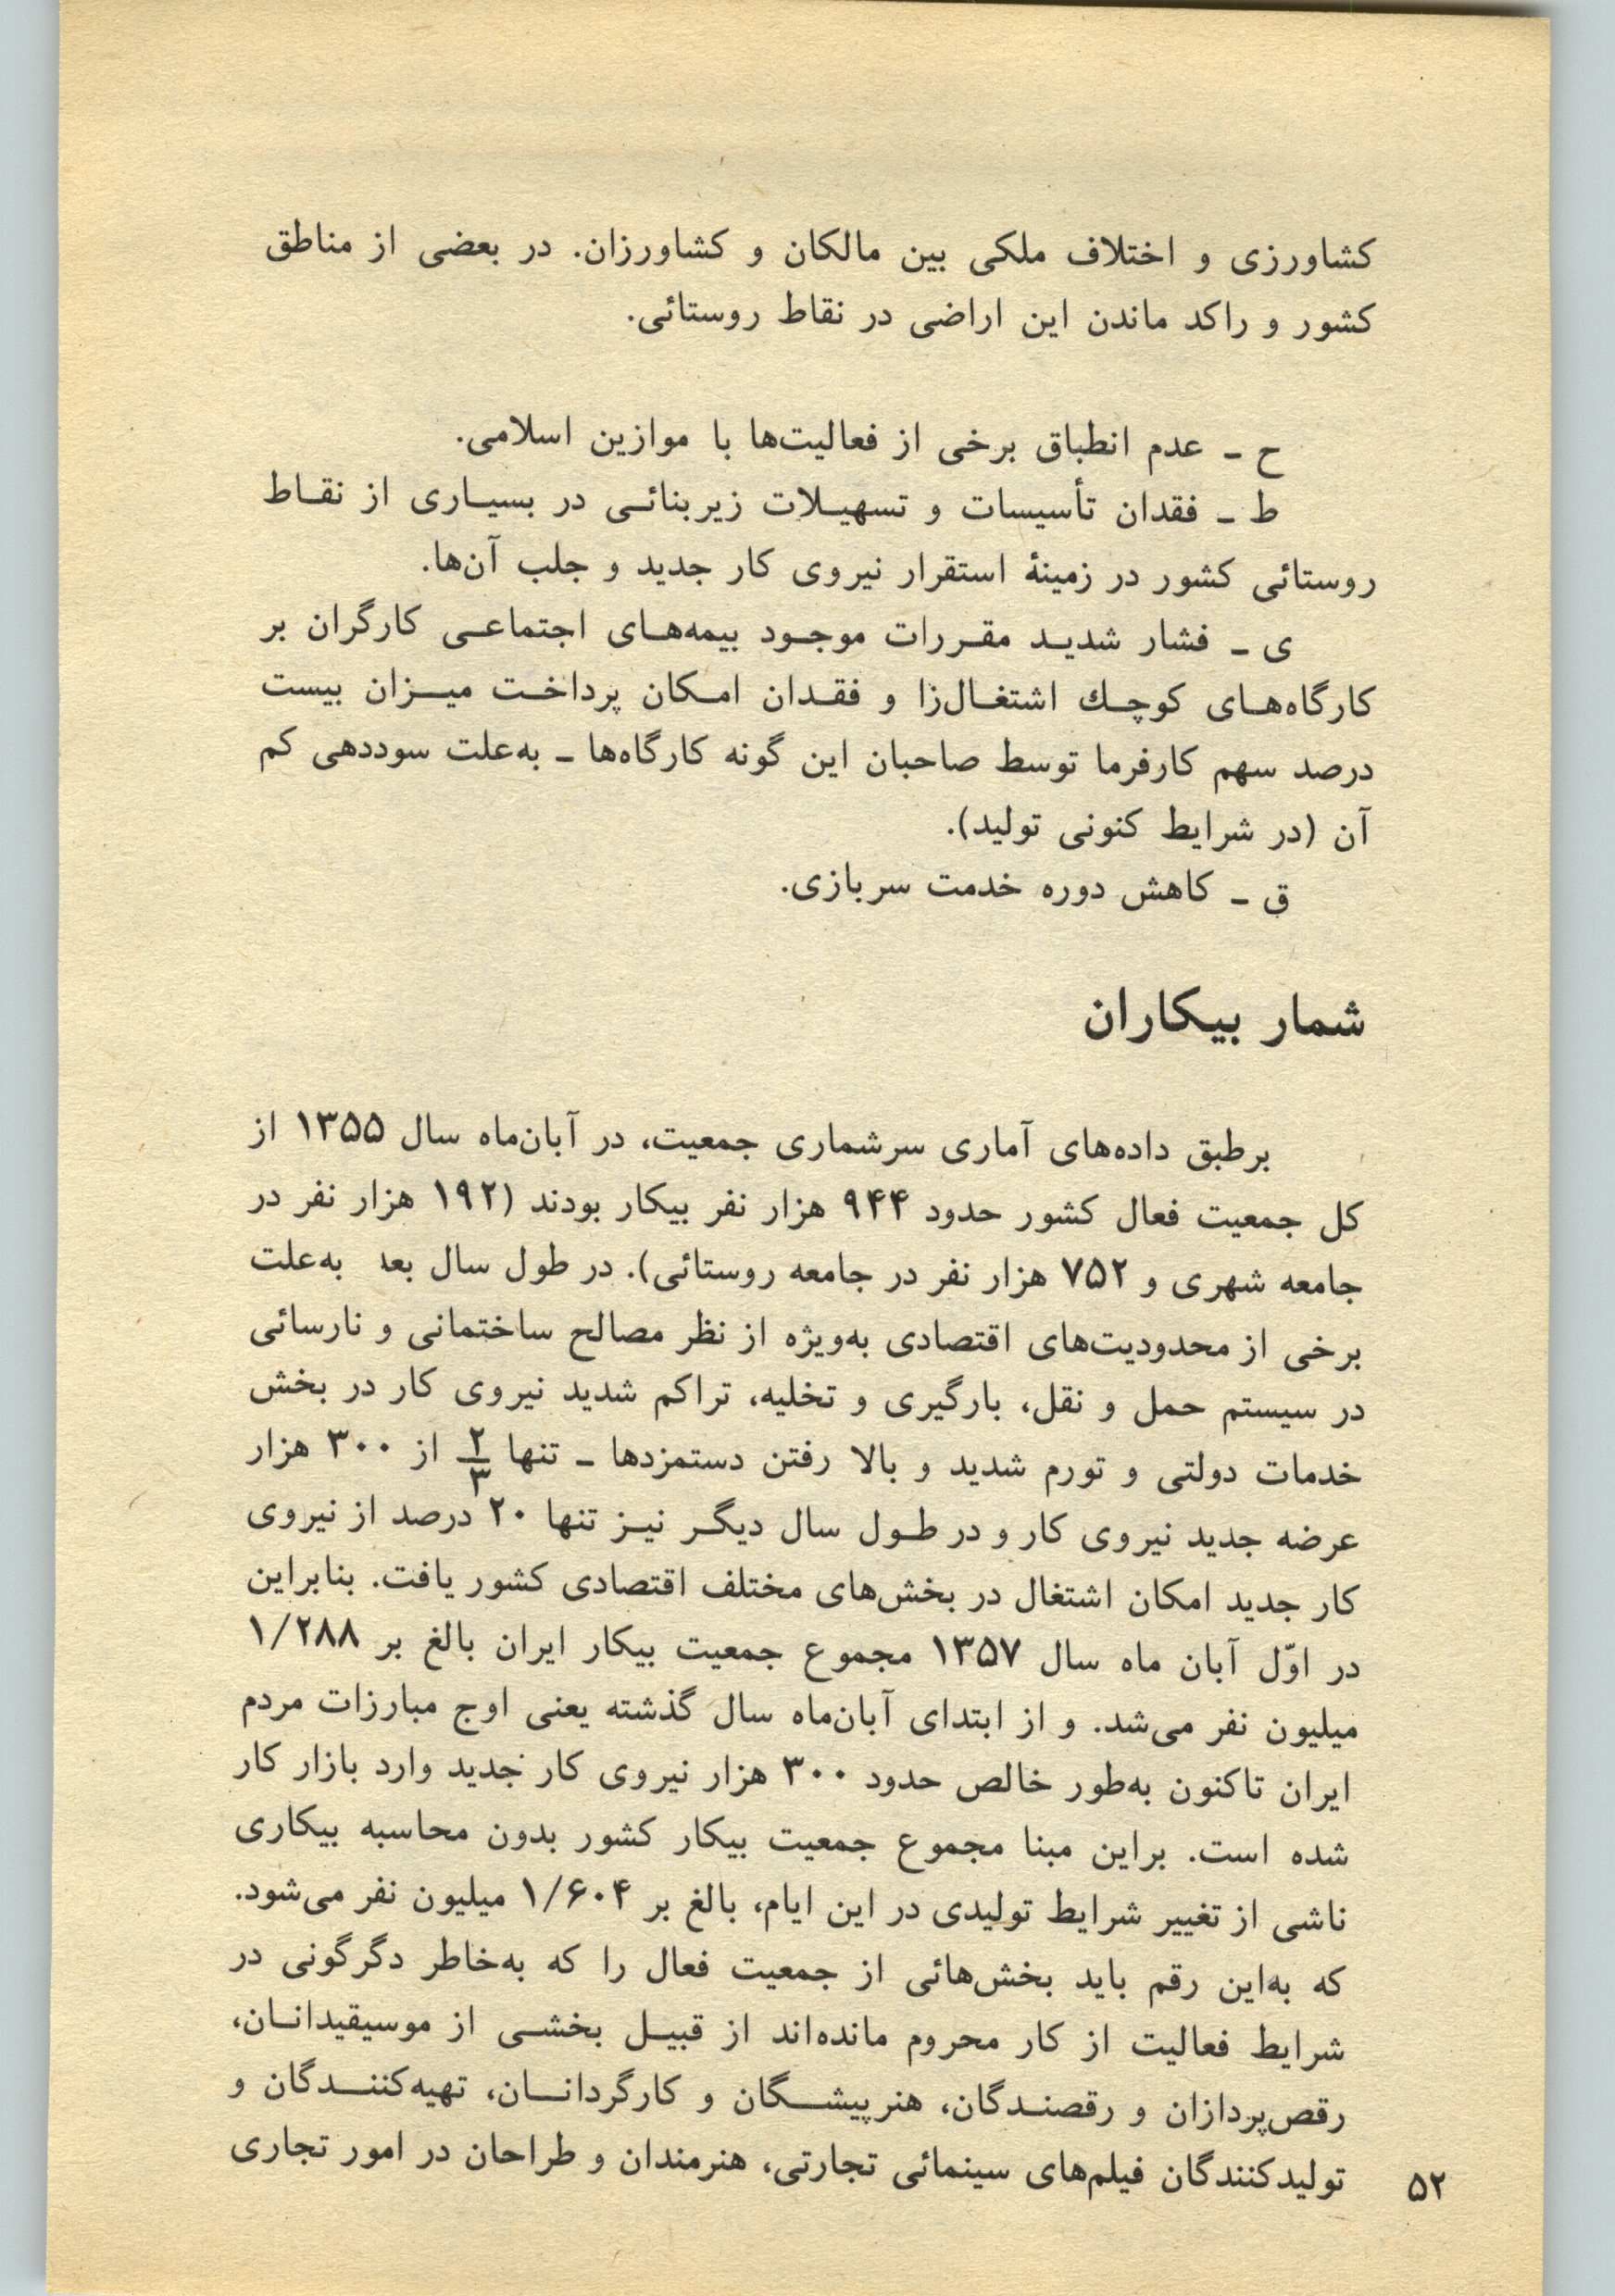 کشاورزی و اختلاف ملکی بین مالکان و کشاورزان. در بعضی از مناطق
کشور و راکد ماندن این اراضی در نقاط روستائی.
ح ـ عدم انطباق برخی از فعالیت‌ها با موازین اسلامی.
ط ـ فقدان تأسیسات و تسهیـلات زیربنائـی در بسیـاری از نقـاط
روستائی کشور در زمینهٔ استقرار نیروی کار جدید و جلب آن‌ها.
ی ـ فشار شدیـد مقـررات موجـود بیمه‌هـای اجتماعـی کارگران بر
کارگاه‌هـای کوچـك اشتغـال‌زا و فقـدان امـکان پرداخـت میـزان بیست
درصد سهم کارفرما توسط صاحبان این گونه کارگاه‌ها ـ به‌علت سوددهی کم
آن (در شرایط کنونی تولید).
ق ـ کاهش دوره خدمت سربازی.
شمار بیکاران
برطبق داده‌های آماری سرشماری جمعیت، در آبان‌ماه سال ۱۳۵۵ از
کل جمعیت فعال کشور حدود ۹۴۴ هزار نفر بیکار بودند (۱۹۲ هزار نفر در
جامعه شهری و ۷۵۲ هزار نفر در جامعه روستائی). در طول سال بعد به‌علت
برخی از محدودیت‌های اقتصادی به‌ویژه از نظر مصالح ساختمانی و نارسائی
در سیستم حمل و نقل، بارگیری و تخلیه، تراکم شدید نیروی کار در بخش
خدمات دولتی و تورم شدید و بالا رفتن دستمزدها ـ تنها ۲/۳ از ۳۰۰ هزار
عرضه جدید نیروی کار و در طـول سال دیگـر نیـز تنها ۲۰ درصد از نیروی
کار جدید امکان اشتغال در بخش‌های مختلف اقتصادی کشور یافت. بنابراین
در اوّل آبان ماه سال ۱۳۵۷ مجموع جمعیت بیکار ایران بالغ بر ۱/۲۸۸
میلیون نفر می‌شد. و از ابتدای آبان‌ماه سال گذشته یعنی اوج مبارزات مردم
ایران تاکنون به‌طور خالص حدود ۳۰۰ هزار نیروی کار جدید وارد بازار کار
شده است. براین مبنا مجموع جمعیت بیکار کشور بدون محاسبه بیکاری
ناشی از تغییر شرایط تولیدی در این ایام، بالغ بر ۱/۶۰۴ میلیون نفر می‌شود.
که به‌این رقم باید بخش‌هائی از جمعیت فعال را که به‌خاطر دگرگونی در
شرایط فعالیت از کار محروم مانده‌اند از قبیـل بخشـی از موسیقیدانـان،
رقص‌پردازان و رقصنـدگان، هنرپیشـگان و کارگردانـان، تهیه‌کننـدگان و
تولیدکنندگان فیلم‌های سینمائی تجارتی، هنرمندان و طراحان در امور تجاری
۵۲